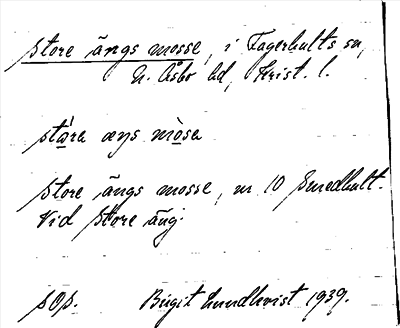 store ängs mosse, i Fagerhults sn,
N. Åsbo hd, Krist. l.
stǻra æŋs mòsa
store ängs mosse, nr 10 Smedhult.
Vid store äng.
sOp. Birgit Lundkvist 1939.